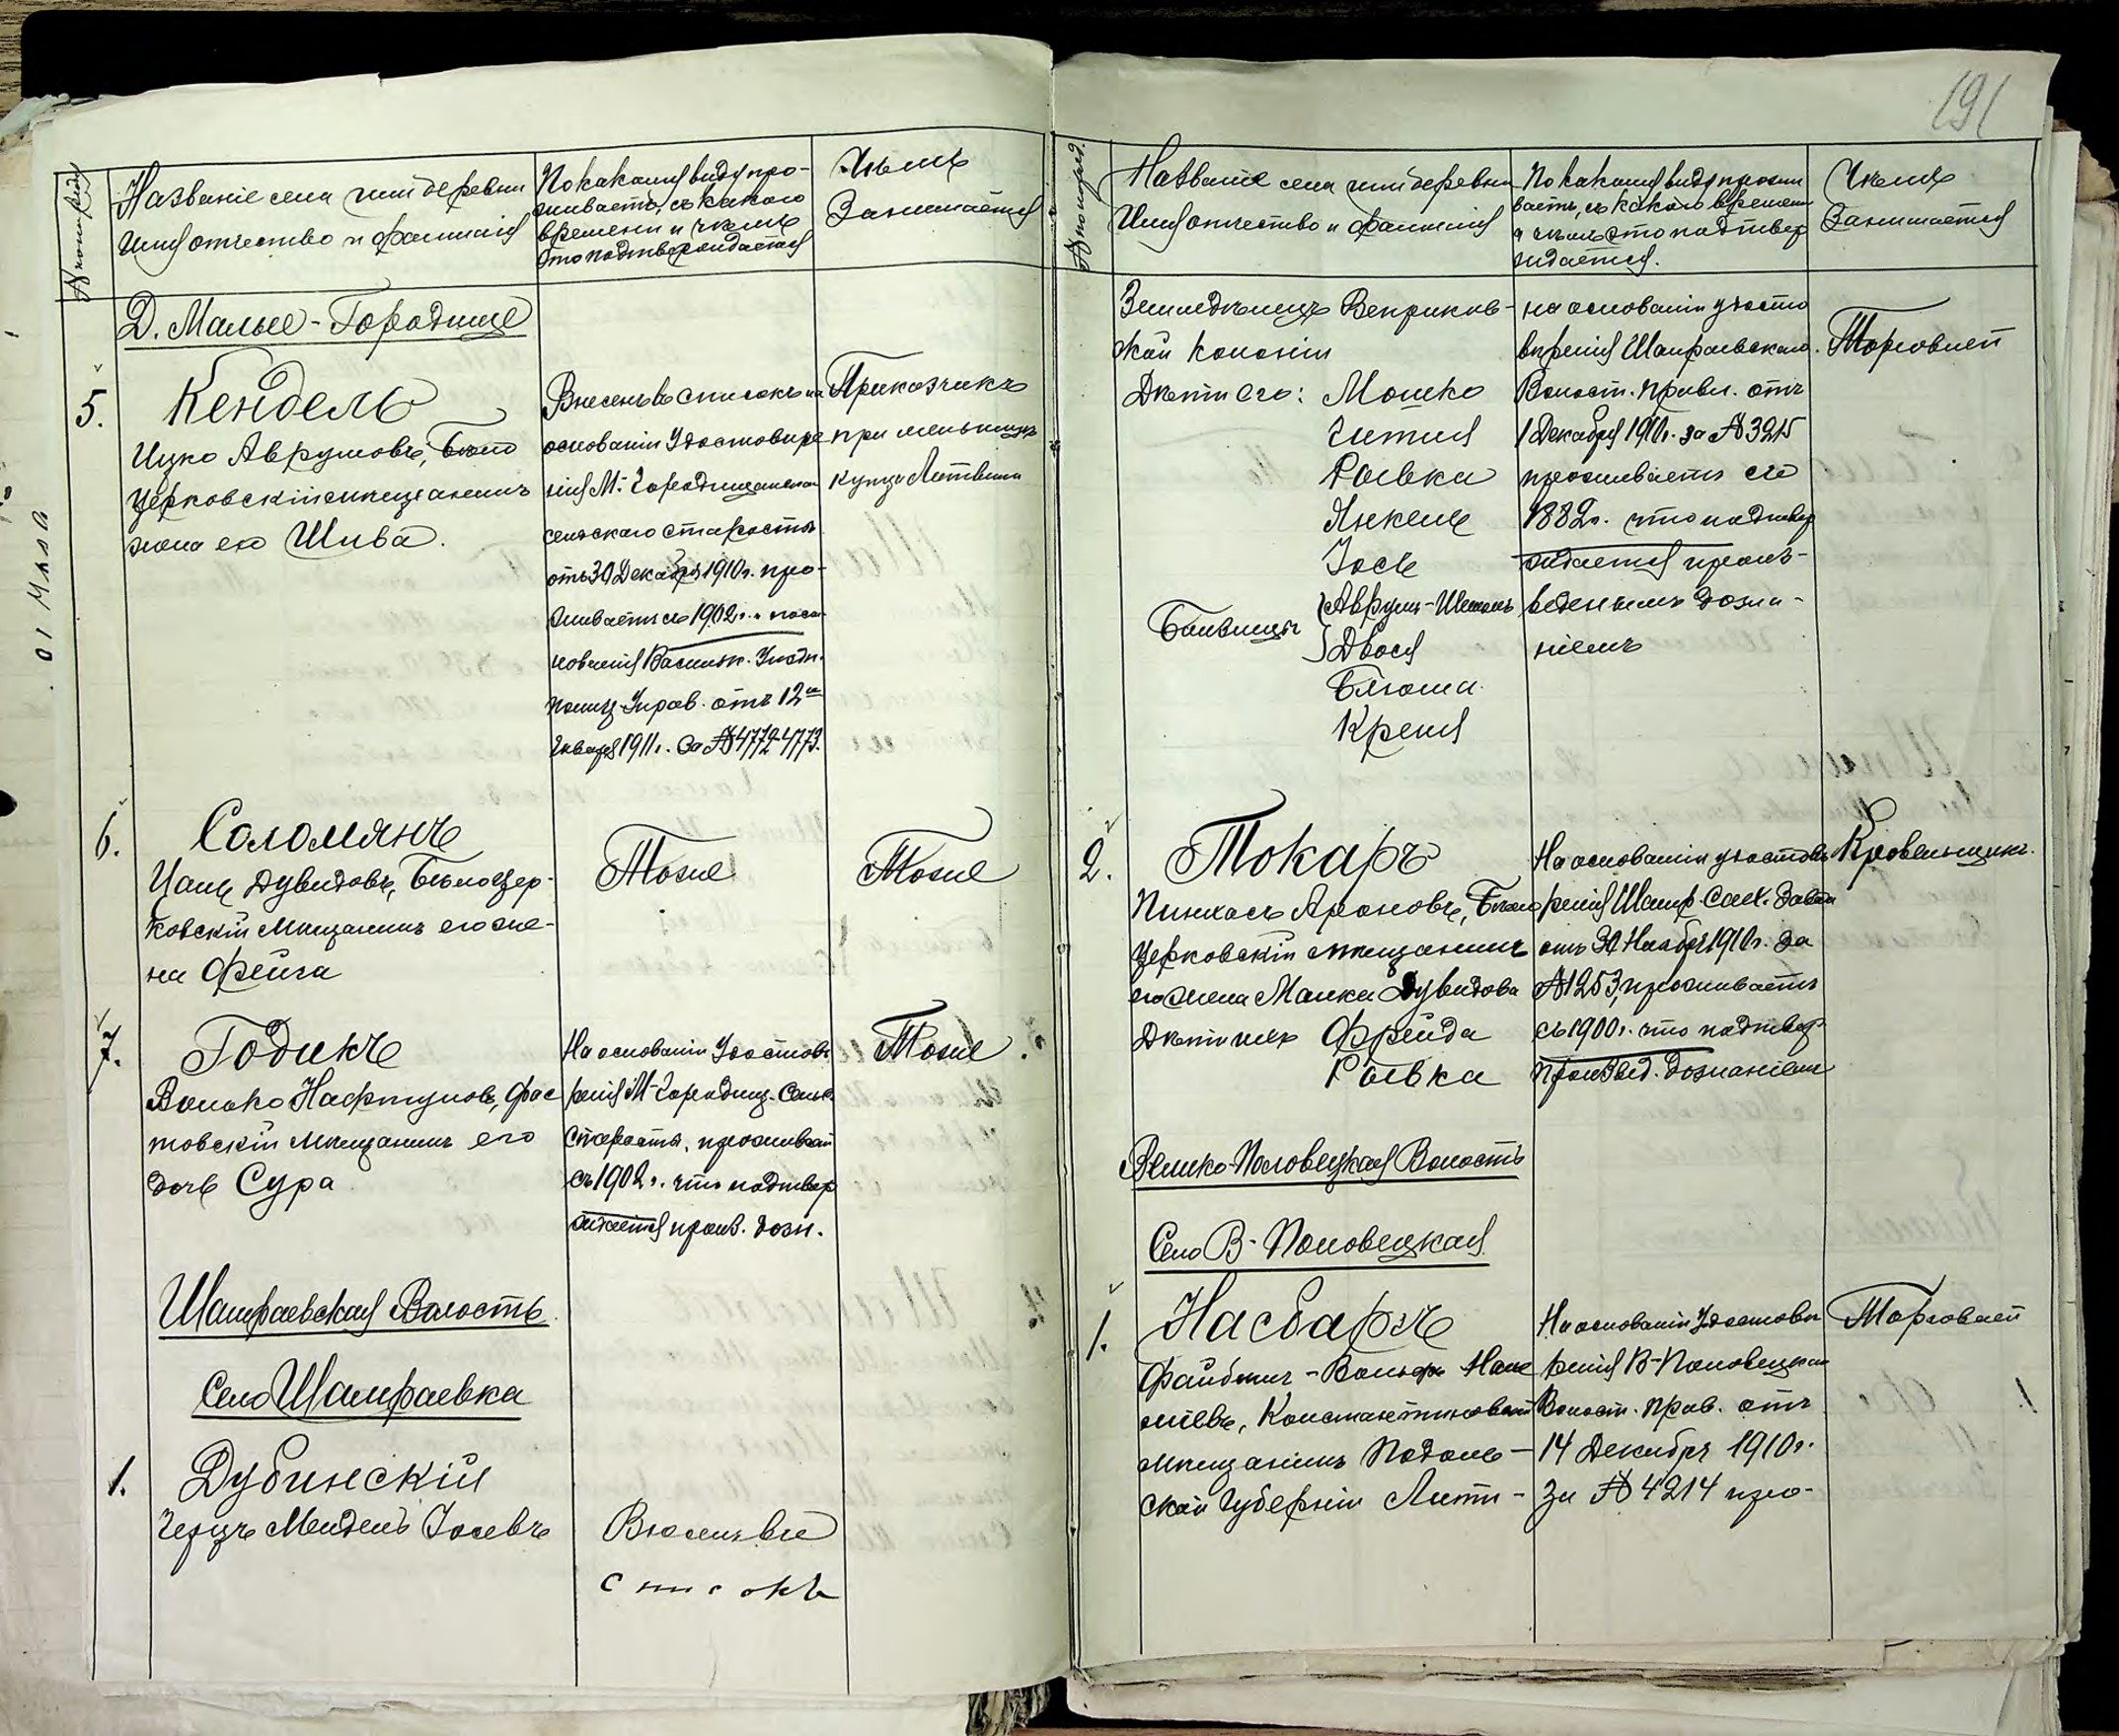 № по поряд.
Названіе села или деревни
Имя отчество и фамилія
По какому виду про-
живаетъ, съ какого
времени и чѣмъ
это подтверждается
Чѣмъ
Занимается
Д. Малые-Городище
5.
Кендель
Ицко Аврумовъ, Бѣло
церковскій мѣщанинъ
жена его Шива.
Внесенъ въ списокъ на
основаніи Удостовѣре
нія М.-Городищанскаго
сельскаго старосты
отъ 30 Декабря 1910г. про-
живаетъ съ 1902г.
новленія Васильк. Уѣздн.
Полиц. Управ. отъ 12го
Января 1911г. за №4772-4773.
Приказчикъ
при мельницѣ
купца Литвина
6.
Соломянъ
Дувидовъ, Бѣлоцер-
ковскій мѣщанинъ его же-
на Фейга
Тоже
Тоже
7.
Годикъ
Волько Нафтуловъ, Фас
товскій мѣщанинъ его
дочь Сура
На основаніи Удостовѣ
ренія М-Городищ. Сельс.
старосты, проживаетъ
съ 1902г. что подтвер
ждается произ. дозн.
Тоже.
Шамраевская Волость
Село Шамраевка
1.
Дубинскій
Герцъ Мендель Іосевъ
Внесенъ въ
списокъ
191
№ по поряд.
Названіе села или деревни
Имя отчество и фамилія
По какому виду прожи
ваетъ, съ какого времени
и чѣмъ это подтвер
ждается.
Чѣмъ
Занимается
Земледѣлецъ Веприков-
ской колоніи
Дѣти его: Мошко
Гитля
Ривка
Янкель
Іось
Близнецы
Аврумъ-Шмуль
Двося
Блюма
Крейня
на основаніи удосто
вѣренія Шамраевскаго
Волост. Правл. отъ
1 Декабря 1910г. за №3215
проживаетъ съ
1882г. что подтвер
ждается произ-
веденнымъ дозна-
ніемъ
Торговлей
2.
Токаръ
Пинхасъ Ароновъ, Бѣло
церковскій мѣщанинъ
его жена Малка Дувидова
Дѣти ихъ Фрейда
Ривка
На основаніи удостовѣ
ренія Шамр. Сах. Завода
отъ 30 Ноября 1910г. за
№1253, проживаетъ
съ 1900г. что подтвер.
произвед. дознаніемъ
Кровельщикъ.
Велико-Половецкая Волость
Село В-Половецкая
1.
Насбаргъ
Файбишъ-Вольфъ
Константиновскій
мѣщанинъ Подоль-
ской Губерніи Лити-
На основаніи Удостовѣ
ренія В-Половецкаго
Волост. Прав. отъ
14 Декабря 1910г.
за №4214 про-
Торговлей